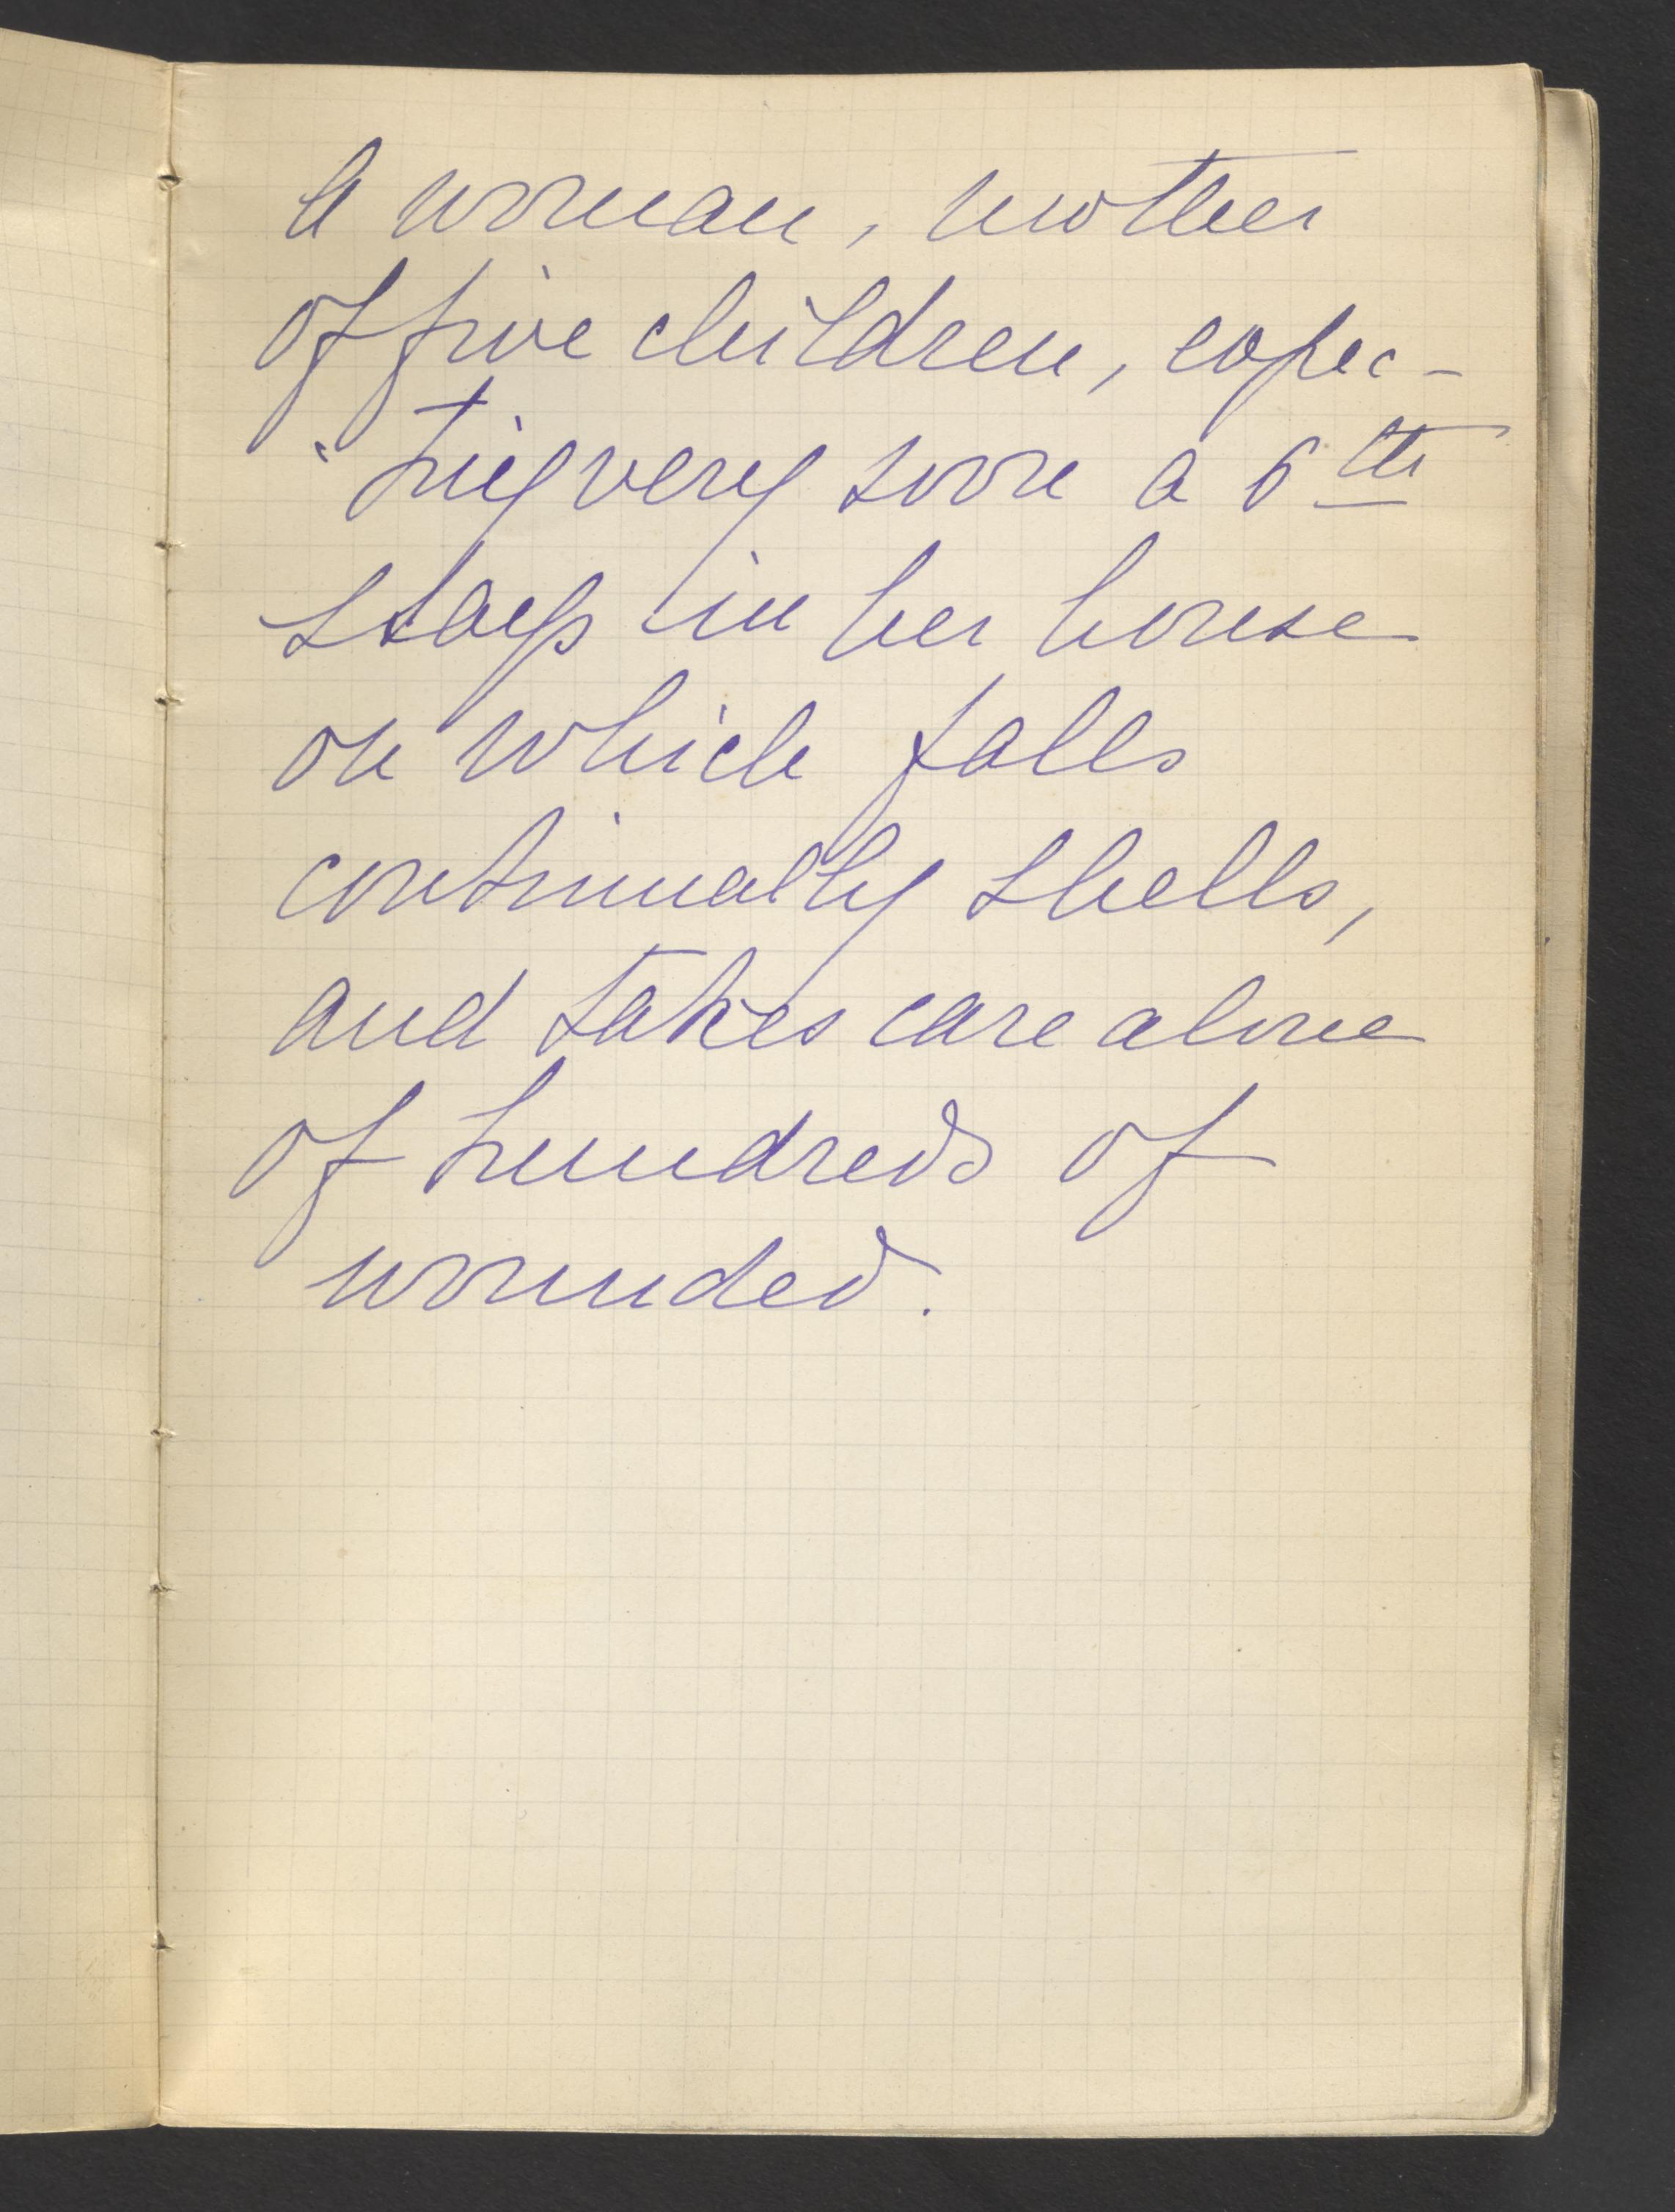 A woman, mother
of five children, expec-
ting very soon a 6th
stays in her house
on which falls
continually shells,
and takes care alone
of hundreds of
wounded.